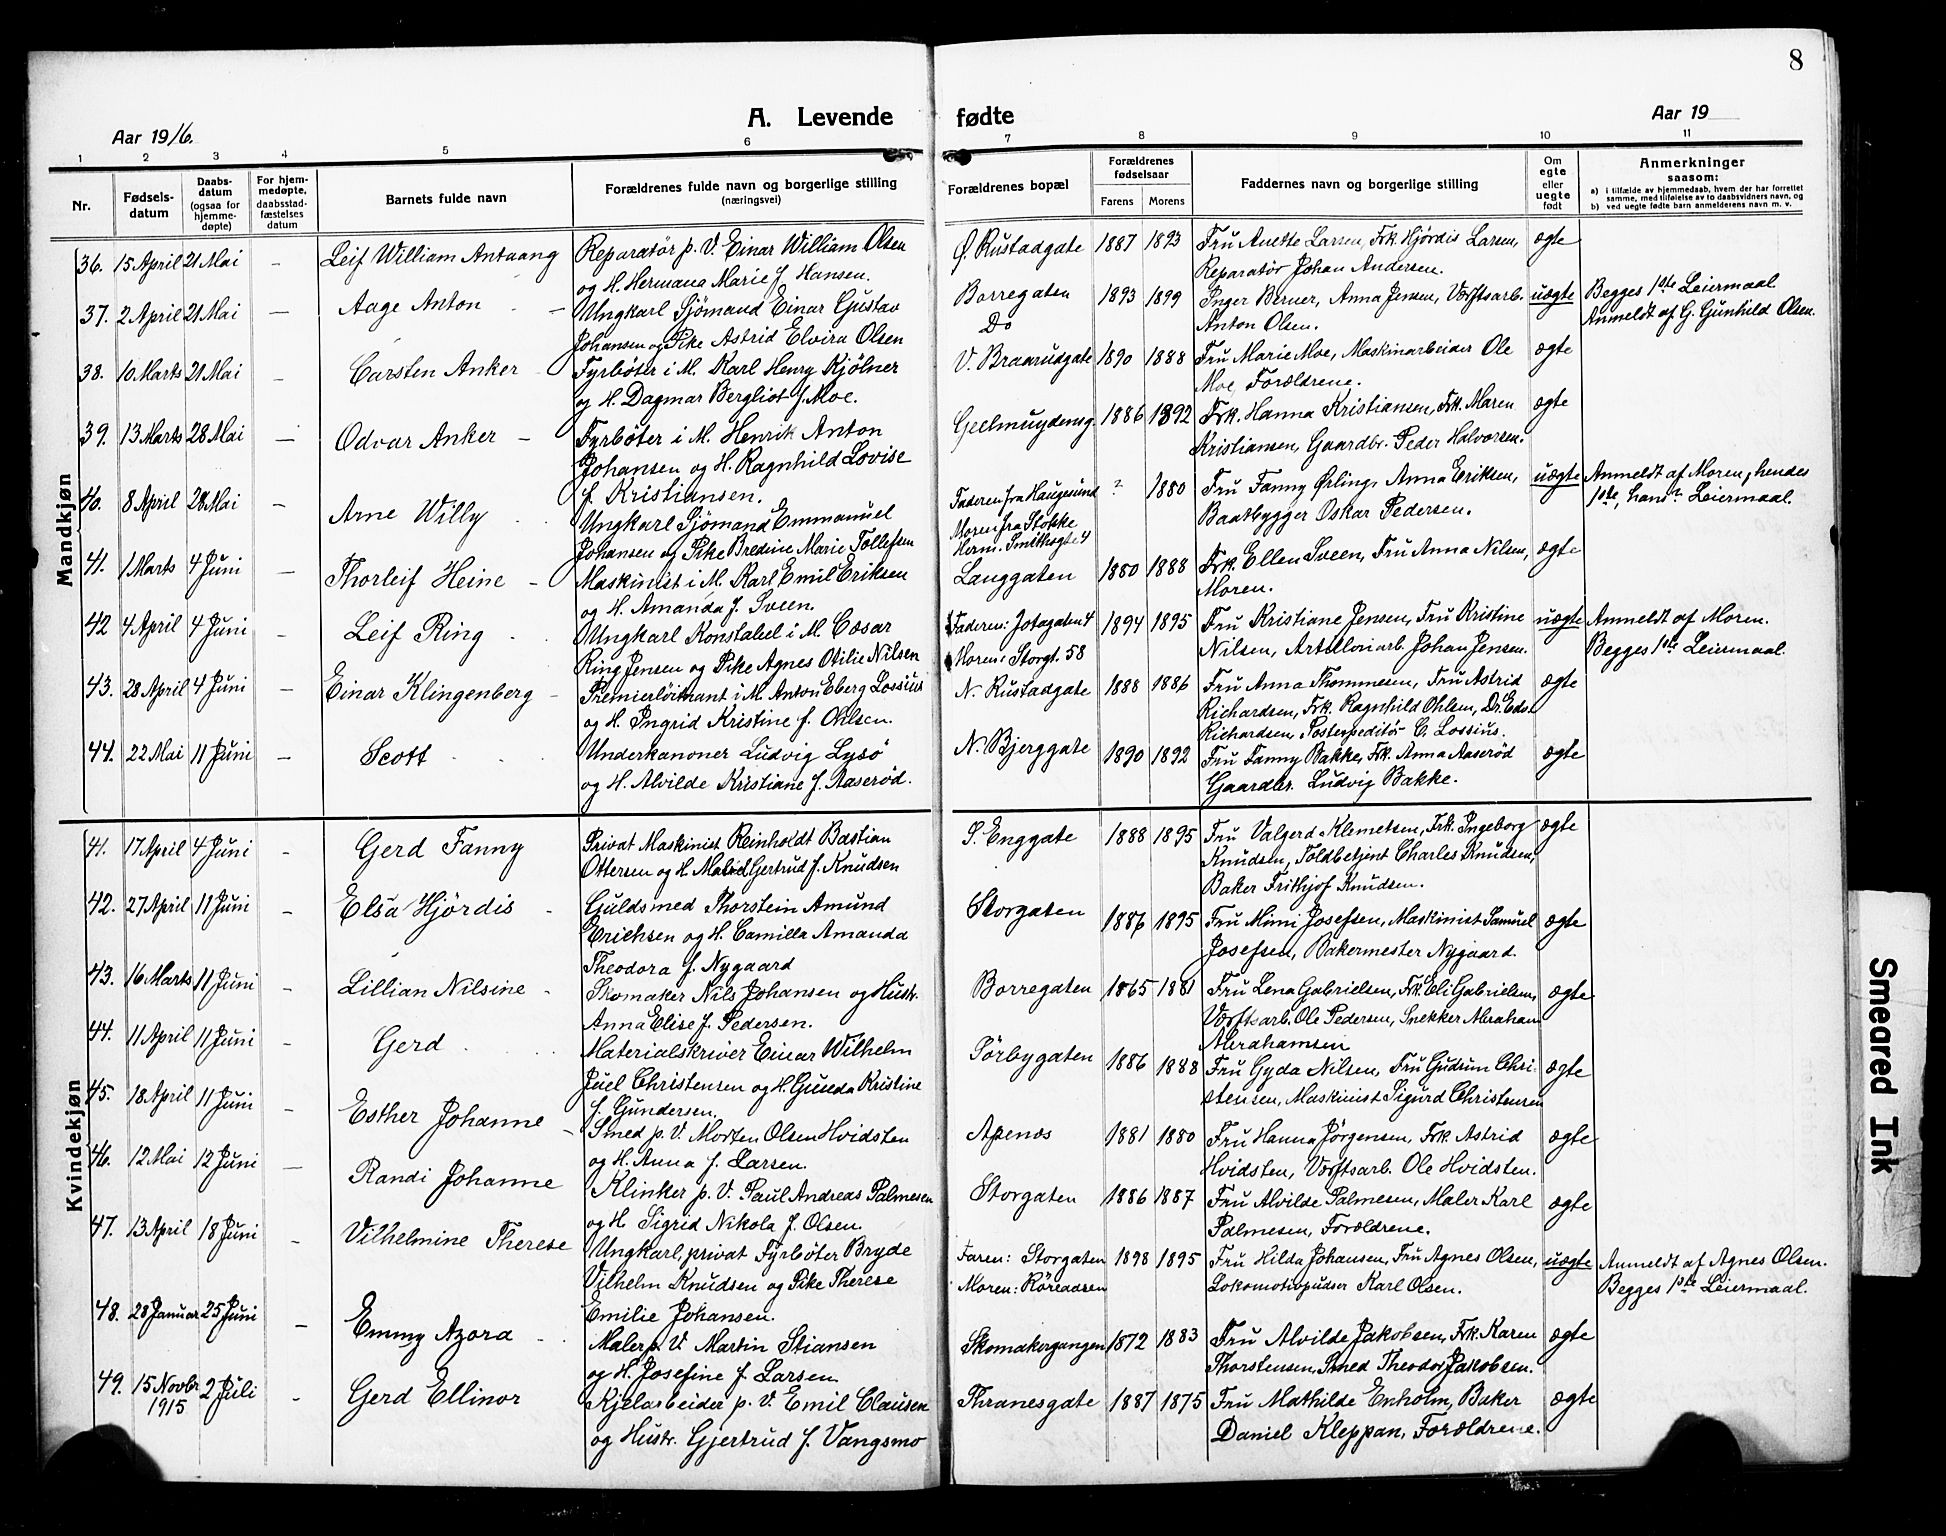 8
A. Levende fødte
Aar 1916.
Aar 19
1 2 3 4 5 6 7 8 9 10 11
Nr.
Fødsels-
datum
Daabs-
datum
(ogsaa for
hjemme-
døpte)
For hjem-
medøpte,
daabsstad-
fæstelses
datum
Barnets fulde navn
Forældrenes fulde navn og borgerlige stilling
(næringsvei)
Forældrenes bopæl
Forældrenes
fødselsaar
Farens Morens
Faddernes navn og borgerlige stilling
Om
egte
eller
uegte
født
Anmerkninger
saasom:
a) i tilfælde av hjemmedaab, hvem der har forrettet
samme, med tilføielse av to daabsvidners navn, og
b) ved uegte fødte barn anmelderens navn m. v.
Mandkjøn
36. 15 April 21 Mai – Leif William Antaang
Reparatör p. V. Einar William Olsen
og H. Hermana Marie f. Hansen.
Ø. Rustadgate 1887 1893
Fru Anette Larsen, Frk. Hjördis Larsen,
Reparatör Johan Andersen.
ægte
37. 2 April 21 Mai – Aage Anton –
Ungkarl Sjömand Einar Gustav
Johansen og Pike Astrid Elvira Olsen
Borregaten
Do
1893 1899
Inger Berner, Anna Jensen, Værftsarb.
Anton Olsen.
uægte
Begges 1ste Leiermaal
Anmeldt af G. Gunhild Olsen.
38. 10 Marts 21 Mai – Carsten Anker –
Fyrböter i M. Karl Henry Kjölner
og H. Dagmar Bergliot f. Moe.
V. Braarudgate 1890 1888
Fru Marie Moe, Maskinarbeider Ole
Moe, Forældrene.
ægte
39. 13 Marts 28 Mai – Odvar Anker –
Fyrböter i M. Henrik Anton
Johansen og H. Ragnhild Lovise
f. Kristiansen.
Geelmuydensg. 1886 1892
Frk. Hanna Kristiansen, Frk. Maren
Kristiansen, Gaardbr. Peder Halvorsen.
ægte
40. 8 April 28 Mai – Arne Willy
Ungkarl Sjömand Emmanuel
Johansen og Pike Bredine Marie Tollefsen
Faderen fra Haugesund
Moren fra Stokke
Herm. Smithsgte 4
? 1880
Fru Fanny Ørling, Anna Eriksen,
Baatbygger Oskar Pedersen.
uægte
Anmeldt af Moren, hendes
1ste, hans ? Leiermaal.
41. 1 Marts 4 Juni – Thorleif Heine –
Maskinist i M. Karl Emil Eriksen
og H. Amanda f. Sveen.
Langgaten 1880 1888
Frk. Ellen Sveen, Fru Anna Nilsen,
Moren.
ægte
42 4 April 4 Juni – Leif Ring
Ungkarl Konstabel i M. Cæsar
Ring Jensen og Pike Agnes Otilie Nilsen
Faderen: Jotagaten 4
Moren: Storgt. 58
1894 1895
Fru Kristiane Jensen, Fru Kristine
Nilsen, Artilleriarb. Johan Jensen.
uægte
Anmeldt af Moren.
Begges 1ste Leiermaal.
43. 28 April 4 Juni – Einar Klingenberg –
Premierlöitnant i M. Anton Eberg Lossius
og H. Ingrid Kristine f. Ohlsen.
N. Rustadgate 1888 1886
Fru Anna Thommesen, Fru Astrid
Richardsen, Frk. Ragnhild Ohlsen, Dr. Edv.
Richardsen, Postexpeditör C. Lossius.
ægte
44. 22 Mai 11 Juni – Scott
Underkanoner Ludvig Lysö
og H. Alvilde Kristiane f. Aaseröd.
N. Bjerggate 1890 1892
Fru Fanny Bakke, Frk. Anna Aaseröd
Gaardbr. Ludvig Bakke.
ægte
Kvindekjøn
41. 17 April 4 Juni – Gerd Fanny
Privat Maskinist Reinholdt Bastian
Ottersen og H. Gertrud f. Knudsen
S. Enggate 1888 1895
Fru Valgerd Klemetsen, Frk. Ingeborg
Knudsen, Toldbetjent Charles Knudsen,
Baker Frithjof Knudsen.
ægte
42. 27 April 11 Juni – Elsa Hjördis –
Guldsmed Thorstein Amund
Erichsen og H. Camilla Amanda
Theodora f. Nygaard
Storgaten 1886 1895
Fru Mimi Josefsen, Maskinist Samuel
Josefsen, Bakermester Nygaard.
ægte
43. 16 Marts 11 Juni – Lillian Nilsine –
Skomaker Nils Johansen og Hustr.
Anna Elise f. Pedersen.
Borregaten 1865 1881
Fru Lena Gabrielsen, Frk. Eli Gabrielsen,
Værftsarb. Ole Pedersen, Snekker Abraham
Abrahamsen
ægte
44. 11 April 11 Juni – Gerd
Materialskriver Einar Wilhelm
Juel Christensen og H. Gunda Kristine
f. Gundersen.
Pörbygaten 1886 1888
Fru Gyda Nilsen, Fru Gudrun Chri-
stensen, Maskinist Sigurd Christensen
ægte
45. 18 April 11 Juni – Esther Johanne –
Smed p. V. Morten Olsen Hvidsten
og H. Anna f. Larsen.
Apenæs 1881 1880
Fru Hanna Jörgensen, Frk. Astrid
Hvidsten, Værftsarb. Ole Hvidsten.
ægte
46. 12 Mai 12 Juni – Randi Johanne
Klinker p. V. Paul Andreas Palmesen
og H. Sigrid Nikola f. Olsen.
Storgaten 1886 1887
Fru Alvilde Palmesen, Maler Karl
Palmesen, Forældrene.
ægte
47. 13 April 18 Juni – Vilhelmine Therese
Ungkarl, privat Fyrböter Bryde
Vilhelm Knudsen og Pike Therese
Emilie Johansen.
Faren: Storgaten
Moren: Röreaasen
1898 1895
Fru Hilda Johansen, Fru Agnes Olsen,
Lokomotivpudser Karl Olsen.
uægte
Anmeldt af Agnes Olsen.
Begges 1ste Leiermaal.
48. 28 Januar 25 Juni – Emmy Azora –
Maler p. V. Martin Stiansen
og H. Josefine f. Larsen
Skomakergangen 1872 1883
Fru Alvilde Jakobsen, Frk. Karen
Thorstensen, Smed Theodor Jakobsen.
ægte
49. 15 Novbr 1915 2 Juli – Gerd Ellinor
Kjelarbeider p. V. Emil Clausen
og Hustr. Gjertrud f. Vangsmo
Thranesgate 1887 1875
Fru Mathilde Enholm, Baker
Daniel Kleppan, Forældrene.
ægte
Smeared Ink